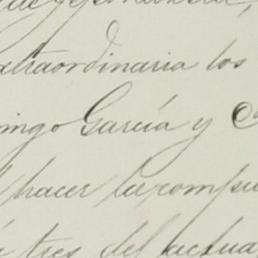 xtraordinaria los
ingo García y
hacer la compu
tres del actua